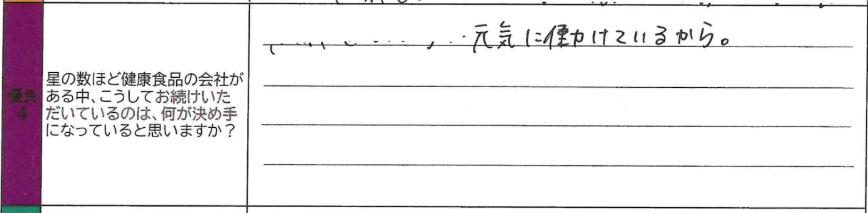 優良
4
星の数ほど健康食品の会社が
ある中、こうしてお続けいた
だいているのは、何が決め手
になっていると思いますか？
元気に働けているから。